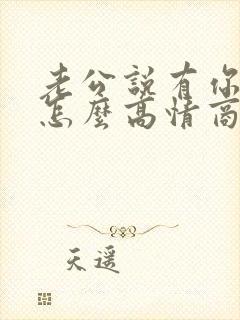 老公說有你
怎麼高情商
天遥